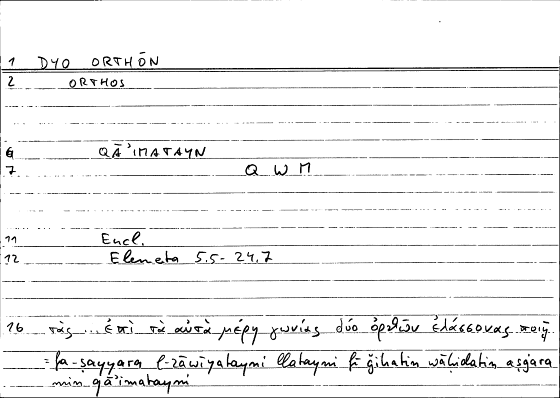 1 DYO ORTHŌN
2 ORTHOS
6 QĀʾIMATAYN
7 Q W M
11 Eucl.
12 Elementa 5.5-24.7
16 τὰς ... ἐπὶ τὰ αὐτὰ μέρη γωνίας δύο ὀρθῶν ἐλάσσονας ποιῇ
= fa-ṣayyara l-zāwiyatayni llatayni fī ǧihatin wāḥidatin aṣġara
min qāʾimatayni